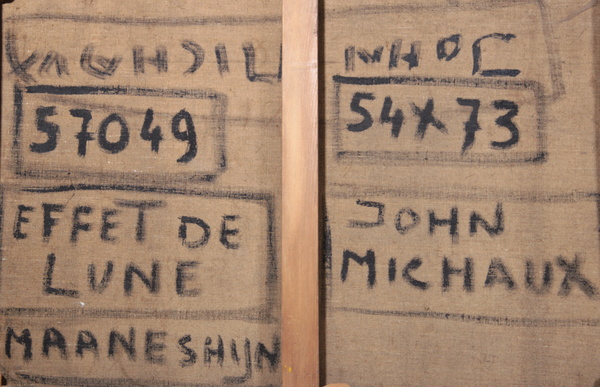 57049
54X73
EFFET DE
LUNE
JOHN
MICHAUX
MAANESHIJN